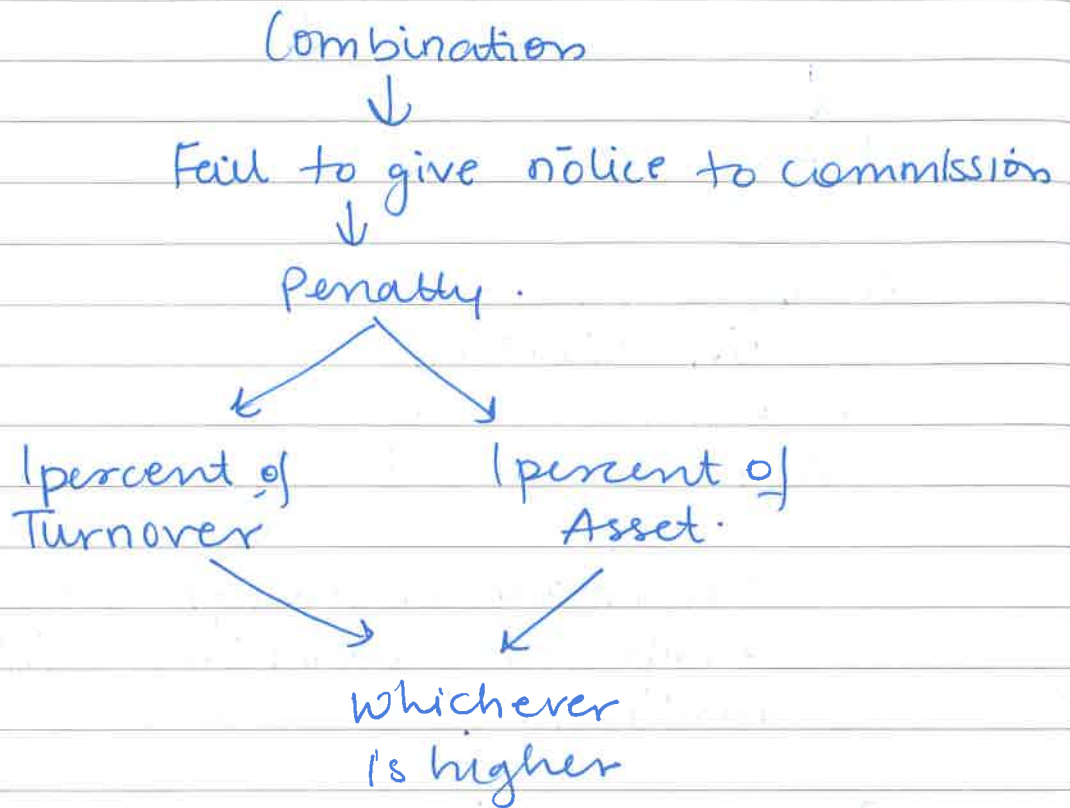 Combination
Fail to give notice to commission
Penalty.
1 percent of
Turnover
1 percent of
Asset.
whichever
is higher